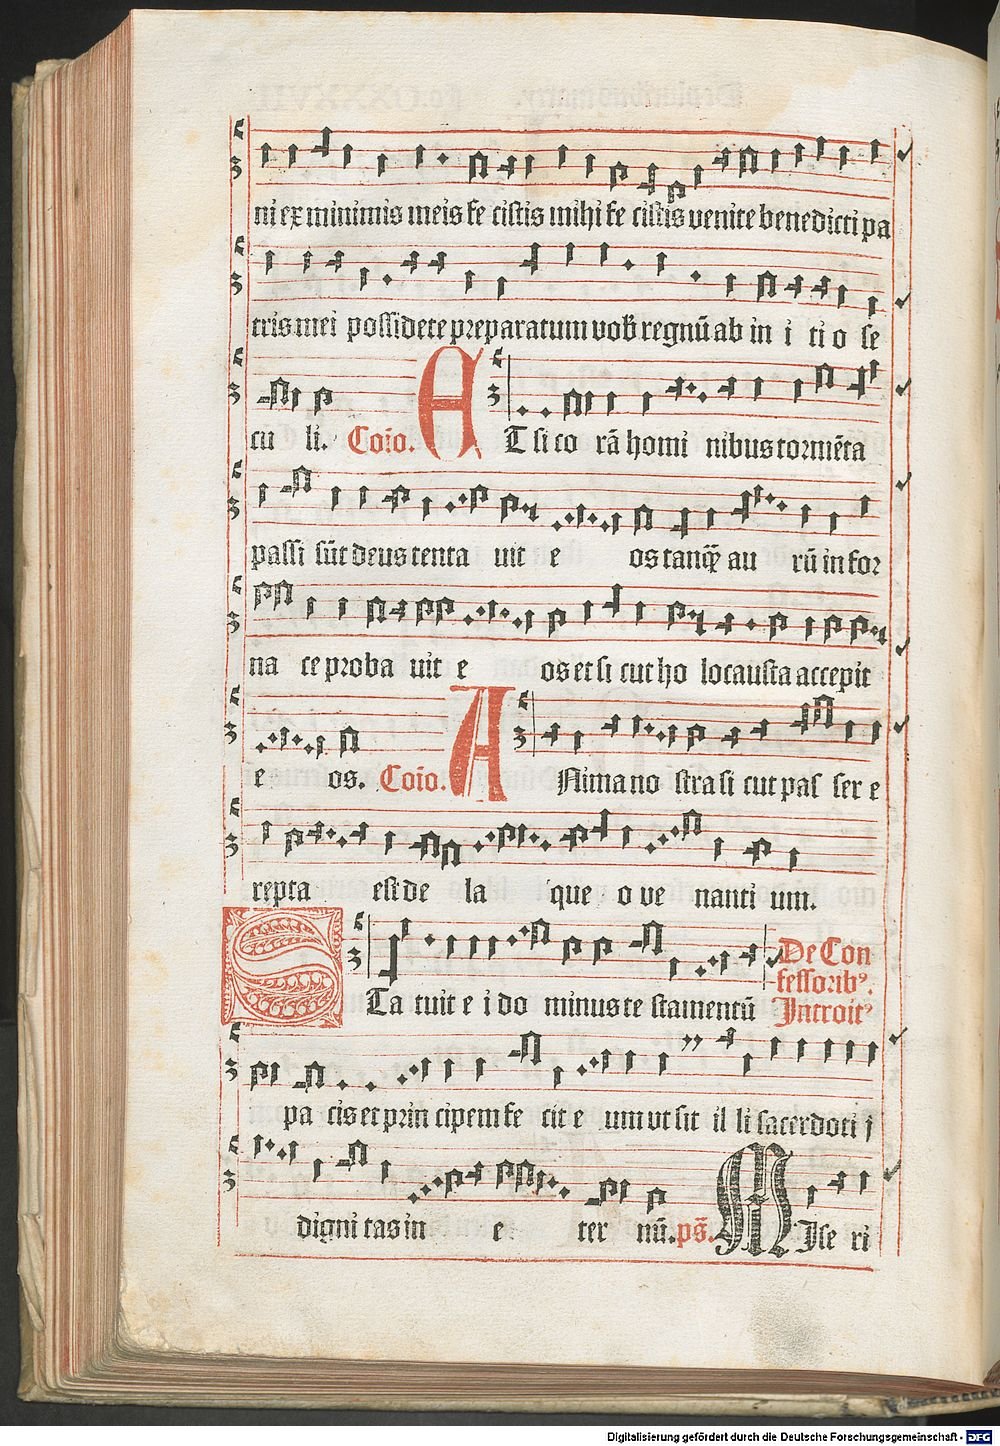 ni ex minimis meis fe cistis mihi fe cistis venite benedicti pa
tris mei possidete preparatum vob regnū ab in i ti o se
cu li. Coīo. ET si co rā homi nibus tormēta
passi sūt deus tenta uit e os tanq̄ au rū in for
na ce proba uit e os et si cut ho locausta accepit
e os. Coīo. ANima no stra si cut pas ser e
repta est de la que o ve nanti um.
STa tuit e i do minus te stamentū De Con
fessoribꝰ.
Introitꝰ
pa cis et prin cipem fe cit e um vt sit il li sacerdoti j
digni tas in e ter nū. ps̄. MIse ri
Digitalisierung gefördert durch die Deutsche Forschungsgemeinschaft - DFG